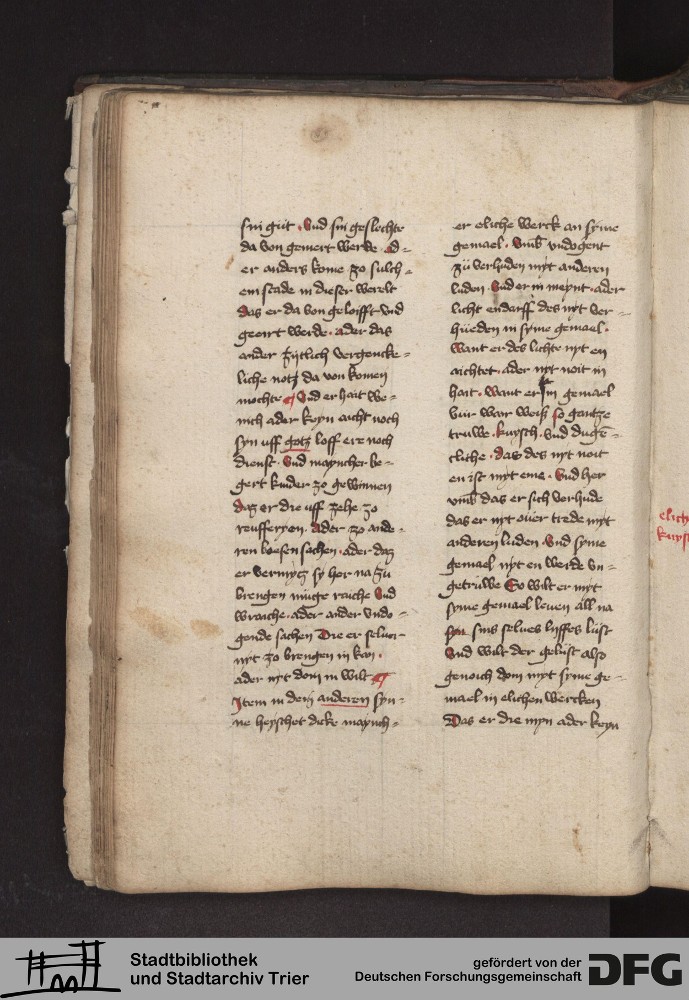 sin gut . Vnd sin geslechte
da von gemert werde . od=
er anders kome zo sulch=
em stade in dieser werelt
das er da von geloifft vnd
geeirt werde . ader das
ander zijtlich vergencke=
liche notz da von komen
mochte Vnd er hait we=
nich ader keyn aicht noch
syn uff gotz loff ere noch
dienst . Vnd mayncher be=
gert kinder zo gewinnen
daz er die uff zehe zo
Ader zo ande=
ren boesen sachen . ader daz
er vermytz sy her na zu
brengen muge raiche Vnd
wraiche . ader ander vndo=
gende sachen Die er selver
nyt zo brengen in kan .
ader nyt doin in wilt
Item in dem anderen syn=
ne heyschet dicke maynch=
er eliche werck an syme
gemael . vmb vndogent
zu verhuden myt anderen
luden . Vnd er in meynt . ader
licht endarff des nyt ver=
hueden in syme gemael .
want er des lichte nyt en
aichtet . ader nyt noit in
hait . want er sin gemael
vur wair weiß so gantze
truwe . kuysch . Vnd duge=
cliche . das des nyt noit
en ist myt eme . Vnd her
vmb das er sich verhude
das er nyt over trede myt
anderen luden . Vnd syme
gemael nyt en werde vn=
getruwe So wilt er myt
syme gemael leven all na
sins selves lyffes lust
Vnd wilt der gelust also
genoich doin myt syme ge=
mael in elichen wercken
Das er die myn ader keyn
elich
kuysch
Stadtbibliothek
und Stadtarchiv Trier
gefördert von der
Deutschen Forschungsgemeinschaft
DFG